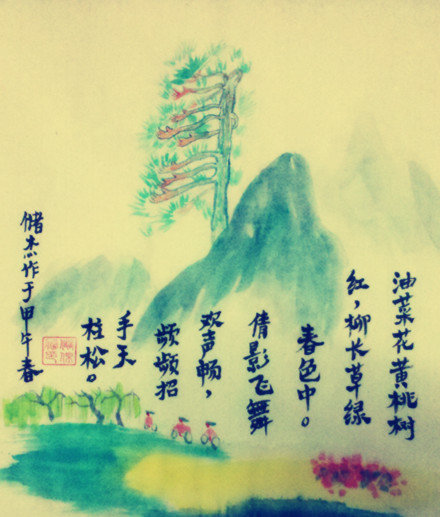 油菜花黄桃树
红，柳长草绿
春色中。
倩影飞舞
欢声畅，
频频招
手天
柱松。
储杰作于甲午春